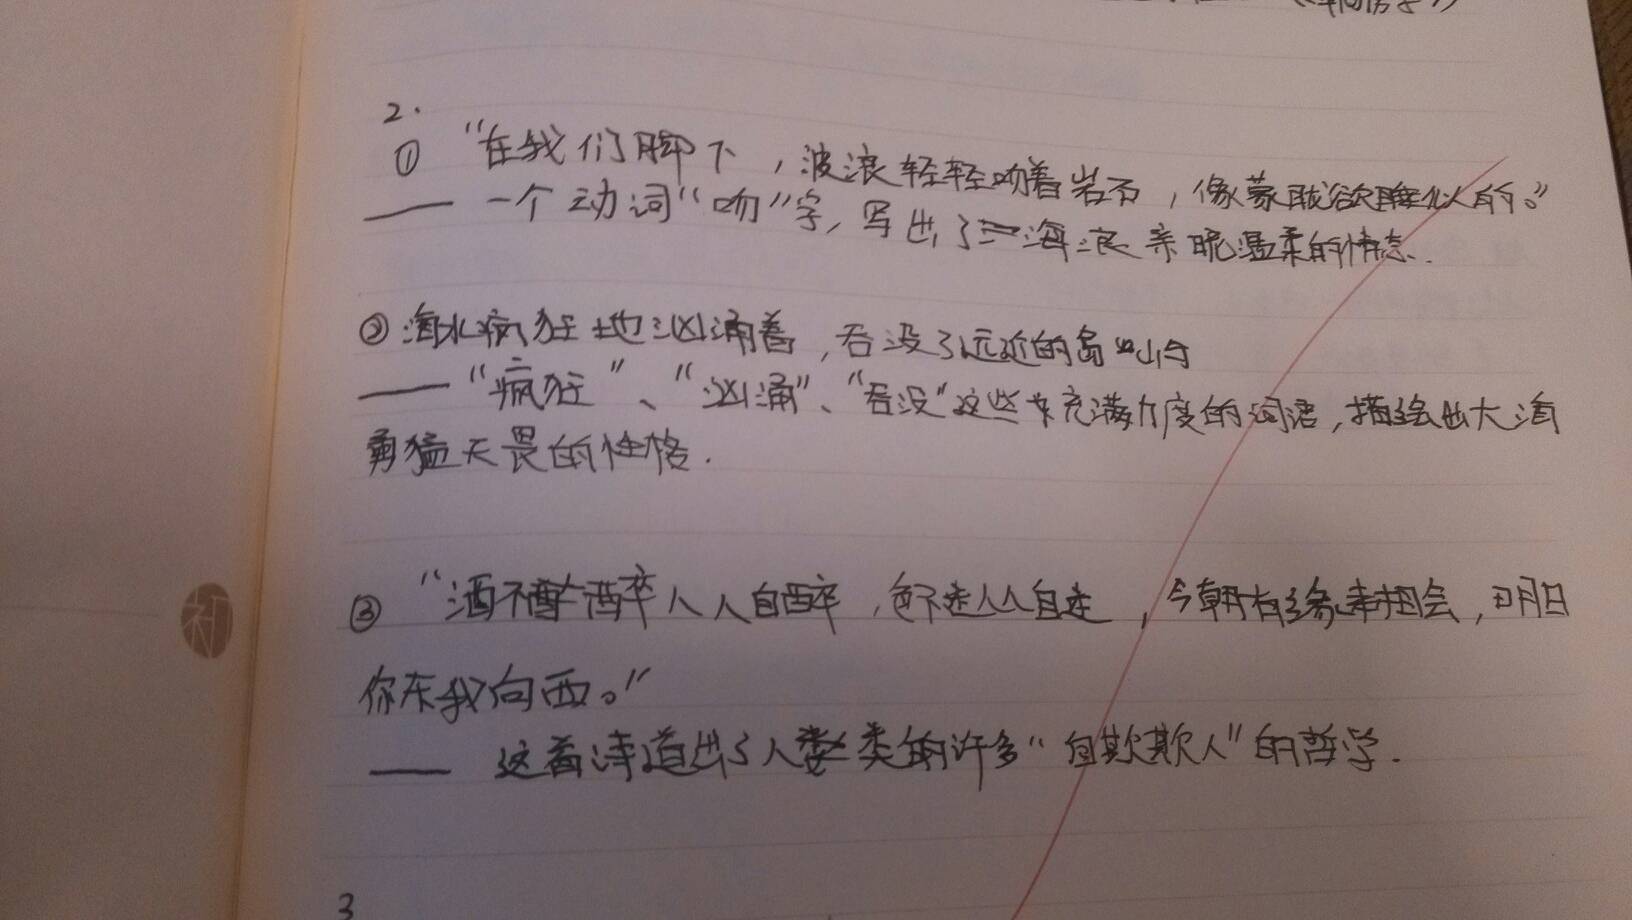 2.
① “在我们脚下，波浪轻轻吻着岩石，像蒙眬欲睡似的。”
—— 一个动词“吻”字，写出了海浪亲昵温柔的情态.
② 海水疯狂地汹涌着，吞没了远近的岛屿
—— “疯狂”、“汹涌”、“吞没”这些充满力度的词语，描绘出大海
勇猛无畏的性格.
③ “酒不醉人人自醉，色不迷人人自迷，今朝有缘来相会，明日
你东我向西。”
—— 这首诗道出了人类的许多“自欺欺人”的哲学.
3
初